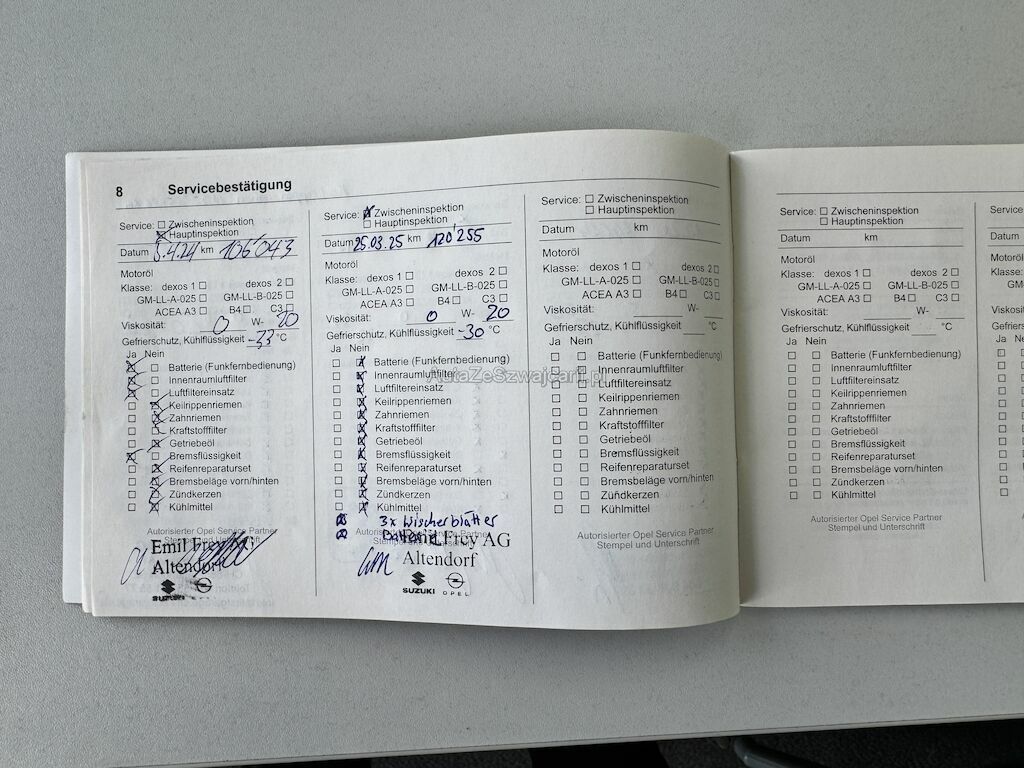 8 Servicebestätigung
Service: ☐ Zwischeninspektion
☒ Hauptinspektion
Datum 5.4.24 km 106'043
Motoröl
Klasse: dexos 1 ☐ dexos 2 ☐
GM-LL-A-025 ☐ GM-LL-B-025 ☐
ACEA A3 ☐ B4 ☐ C3 ☐
Viskosität: 0 W- 20
Gefrierschutz, Kühlflüssigkeit -33 °C
Ja Nein
Batterie (Funkfernbedienung)
Innenraumluftfilter
Luftfiltereinsatz
Keilrippenriemen
Zahnriemen
Kraftstofffilter
Getriebeöl
Bremsflüssigkeit
Reifenreparaturset
Bremsbeläge vorn/hinten
Zündkerzen
Kühlmittel
Autorisierter Opel Service Partner
Emil Frey AG
Altendorf
SUZUKI
Service: ☒ Zwischeninspektion
☐ Hauptinspektion
Datum 25.03.25 km 120'255
Motoröl
Klasse: dexos 1 ☐ dexos 2 ☐
GM-LL-A-025 ☐ GM-LL-B-025 ☐
ACEA A3 ☐ B4 ☐ C3 ☐
Viskosität: 0 W- 20
Gefrierschutz, Kühlflüssigkeit -30 °C
Ja Nein
Batterie (Funkfernbedienung)
Innenraumluftfilter
Luftfiltereinsatz
Keilrippenriemen
Zahnriemen
Kraftstofffilter
Getriebeöl
Bremsflüssigkeit
Reifenreparaturset
Bremsbeläge vorn/hinten
Zündkerzen
Kühlmittel
3x Wischerblätter
Batterie
Emil Frey AG
Altendorf
SUZUKI OPEL
Service: ☐ Zwischeninspektion
☐ Hauptinspektion
Datum km
Motoröl
Klasse: dexos 1 ☐ dexos 2 ☐
GM-LL-A-025 ☐ GM-LL-B-025 ☐
ACEA A3 ☐ B4 ☐ C3 ☐
Viskosität: W-
Gefrierschutz, Kühlflüssigkeit °C
Ja Nein
☐ ☐ Batterie (Funkfernbedienung)
☐ ☐ Innenraumluftfilter
☐ ☐ Luftfiltereinsatz
☐ ☐ Keilrippenriemen
☐ ☐ Zahnriemen
☐ ☐ Kraftstofffilter
☐ ☐ Getriebeöl
☐ ☐ Bremsflüssigkeit
☐ ☐ Reifenreparaturset
☐ ☐ Bremsbeläge vorn/hinten
☐ ☐ Zündkerzen
☐ ☐ Kühlmittel
Autorisierter Opel Service Partner
Stempel und Unterschrift
AutaZeSzwajcarii.pl
Service: ☐ Zwischeninspektion
☐ Hauptinspektion
Datum km
Motoröl
Klasse: dexos 1 ☐ dexos 2 ☐
GM-LL-A-025 ☐ GM-LL-B-025 ☐
ACEA A3 ☐ B4 ☐ C3 ☐
Viskosität: W-
Gefrierschutz, Kühlflüssigkeit °C
Ja Nein
☐ ☐ Batterie (Funkfernbedienung)
☐ ☐ Innenraumluftfilter
☐ ☐ Luftfiltereinsatz
☐ ☐ Keilrippenriemen
☐ ☐ Zahnriemen
☐ ☐ Kraftstofffilter
☐ ☐ Getriebeöl
☐ ☐ Bremsflüssigkeit
☐ ☐ Reifenreparaturset
☐ ☐ Bremsbeläge vorn/hinten
☐ ☐ Zündkerzen
☐ ☐ Kühlmittel
Autorisierter Opel Service Partner
Stempel und Unterschrift
Service:
Datum
Motoröl
Klasse:
Viskosität
Gefriersch
Ja Nein